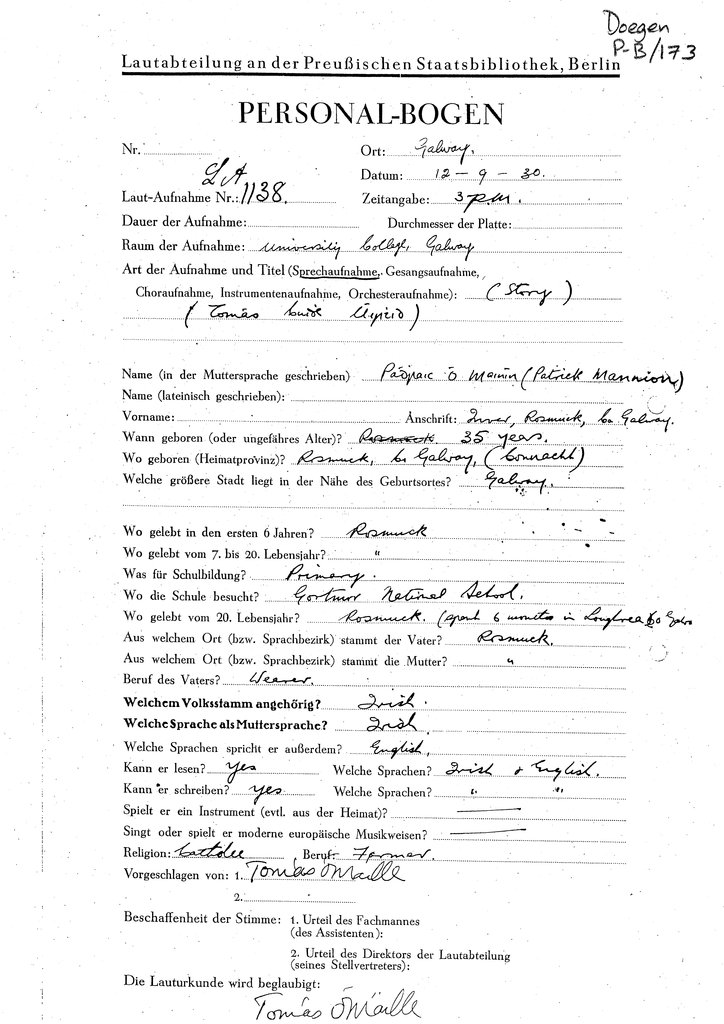 Doegen
P-B/173
Lautabteilung an der Preußischen Staatsbibliothek, Berlin
PERSONAL-BOGEN
Nr.
Ort: Galway.
Datum: 12 – 9 – 30.
Laut-Aufnahme Nr.: LA 1138.
Zeitangabe: 3 p.m.
Dauer der Aufnahme: Durchmesser der Platte:
Raum der Aufnahme: University College, Galway
Art der Aufnahme und Titel (Sprechaufnahme, Gesangsaufnahme,
Choraufnahme, Instrumentenaufnahme, Orchesteraufnahme): (Story)
(Tomás
Name (in der Muttersprache geschrieben) Pádraic Ó Mainín (Patrick Mannion)
Name (lateinisch geschrieben):
Vorname: Anschrift: Inver, Rosmuck, Co Galway.
Wann geboren (oder ungefähres Alter)? Rosmuck 35 years.
Wo geboren (Heimatprovinz)? Rosmuck, Co Galway, (Connacht)
Welche größere Stadt liegt in der Nähe des Geburtsortes? Galway.
Wo gelebt in den ersten 6 Jahren? Rosmuck
Wo gelebt vom 7. bis 20. Lebensjahr? "
Was für Schulbildung? Primary.
Wo die Schule besucht? Gortmor National School.
Wo gelebt vom 20. Lebensjahr? Rosmuck. (spent 6 months in Loughrea Co Galw
Aus welchem Ort (bzw. Sprachbezirk) stammt der Vater? Rosmuck.
Aus welchem Ort (bzw. Sprachbezirk) stammt die Mutter? "
Beruf des Vaters? Weaver.
Welchem Volksstamm angehörig? Irish.
Welche Sprache als Muttersprache? Irish
Welche Sprachen spricht er außerdem? English.
Kann er lesen? yes Welche Sprachen? Irish & English.
Kann er schreiben? yes Welche Sprachen? " "
Spielt er ein Instrument (evtl. aus der Heimat)? —
Singt oder spielt er moderne europäische Musikweisen? —
Religion: Catholic, Beruf: Farmer.
Vorgeschlagen von: 1. Tomás Ó Máille
2.
Beschaffenheit der Stimme: 1. Urteil des Fachmannes
(des Assistenten):
2. Urteil des Direktors der Lautabteilung
(seines Stellvertreters):
Die Lauturkunde wird beglaubigt:
Tomás Ó Máille